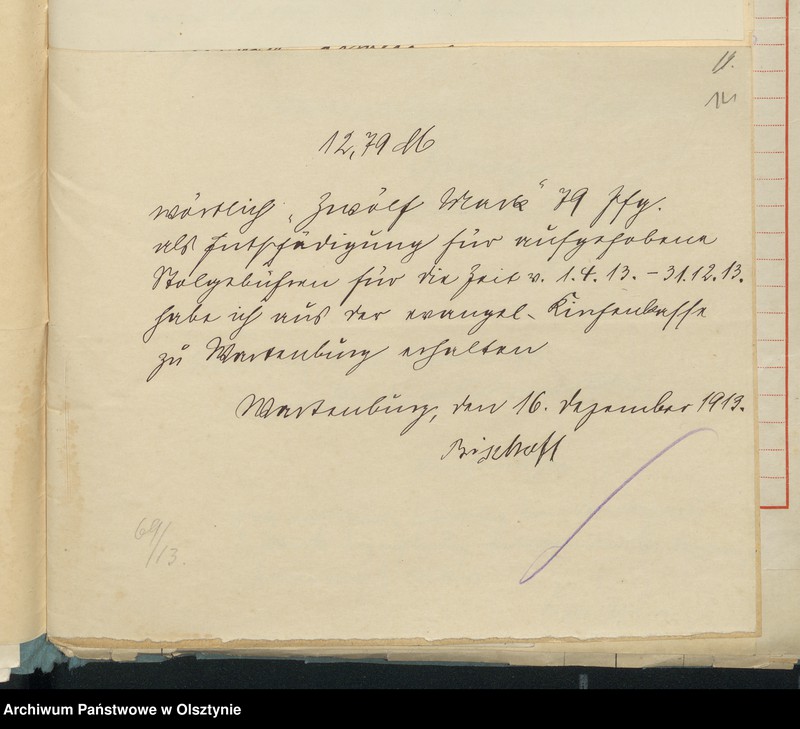 11.
14
12,79 M
wörtlich „Zwölf Mark“ 79 Pfg.
als Entschädigung für aufgehobene
Stolgebühren für die Zeit v. 1.4.13. – 31.12.13.
habe ich aus der evangel. Kirchenkasse
zu Wartenburg erhalten
Wartenburg, den 16. Dezember 1913.
Bischoff
69/13.
Archiwum Państwowe w Olsztynie